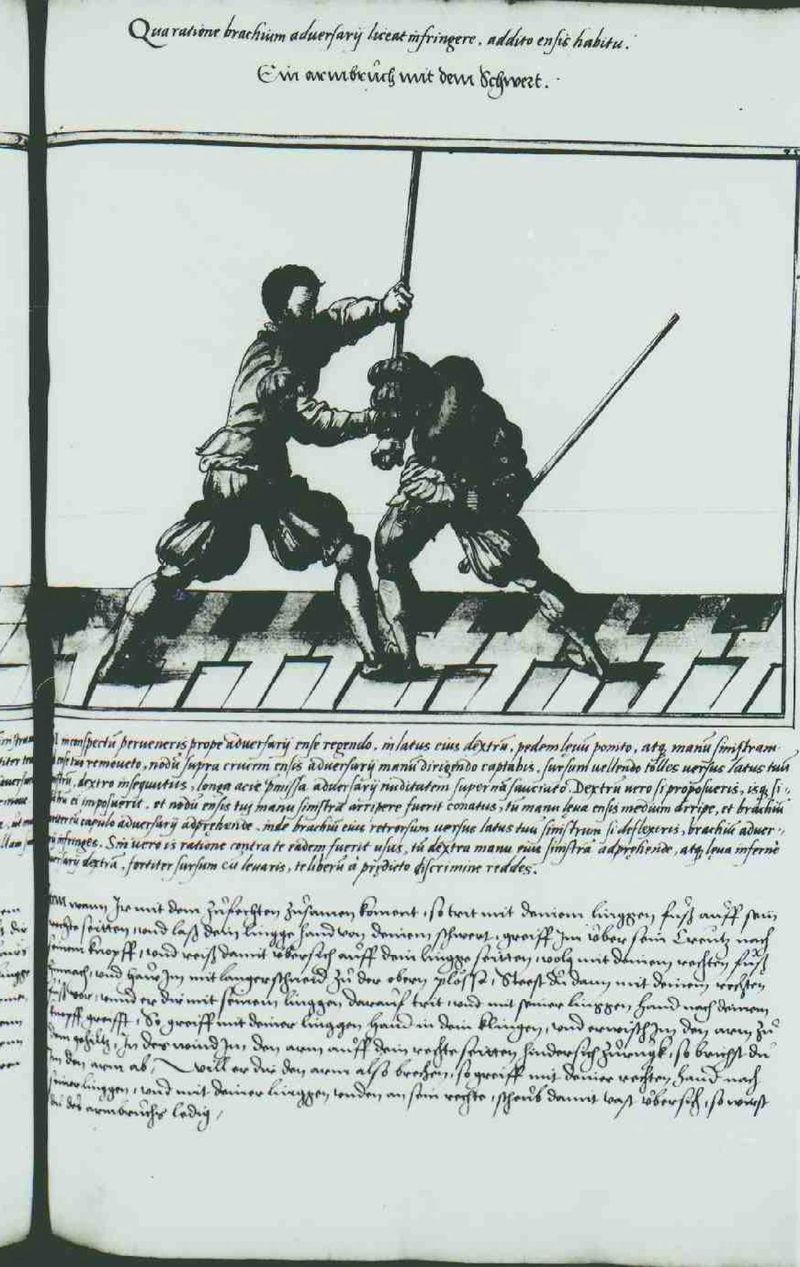 Qua ratione brachium adversarij liceat infringere, addito ensis habitu.
Ein armbruch mit dem Schwert.
in conspectū perveneris prope adversarij ense regendo, in latus eius dextrū, pedem levū ponito, atq, manū sinistram
ense tuo removeto, nodū supra crucem ensis adversarij manū dirigendo captabis, sursum vellendo tolles versus latus tuū
dextro insequutus, longa acie praemissa adversarij nuditatem supernā sauciato. Dextrū vero si proposueris, isq, si-
ei imposuerit, et nodū ensis tuj manu sinistra arripere fuerit conatus, tu manu leva ensem medium arripe, et brachiū
capulo adversarij adprehende, inde brachiū eius retrorsum versus latus tuū sinistrum si deflexeris, brachiū adver-
infringes. Sin vero is ratione contra te eadem fuerit usus, tū dextra manu eius sinistrā adprehende, atq, leva inferne
dextrā, fortiter sursum eū levaris, te liberū à praedicto discrimine reddes.
wann Jr mit dem zufechten zusamen koment, so trit mit deinem linggen fuß auff sein
rechte seitten, und laß dein lingge hand von deinem schwert, greiff Jm uber sein Creutz nach
seinem knopff, und reiß damit ubersich auff dein lingge seitten, volg mit deinem rechten fuß
hinnach, und haw Jm mit langer schneid zu der obern plösse, Steest du dann mit deinem rechten
fuß vor, unnd er dir mit seinem linggen darauf trit, und mit seiner linggen hand nach deinem
knopff greifft, So greiff mit deiner linggen hand in dein klingen, und erwisch Jm den arm zu
dem gehiltz, In des wind Jm den arm auff dein rechte seitten hindersich zuruck, so brichst du
Jm den arm ab, Will er dir den arm also brechen, so greiff mit deiner rechten hand nach
seiner linggen, und mit deiner linggen unden an sein rechte, scheub damit vast ubersich, so wirst
du des armbruchs ledig,